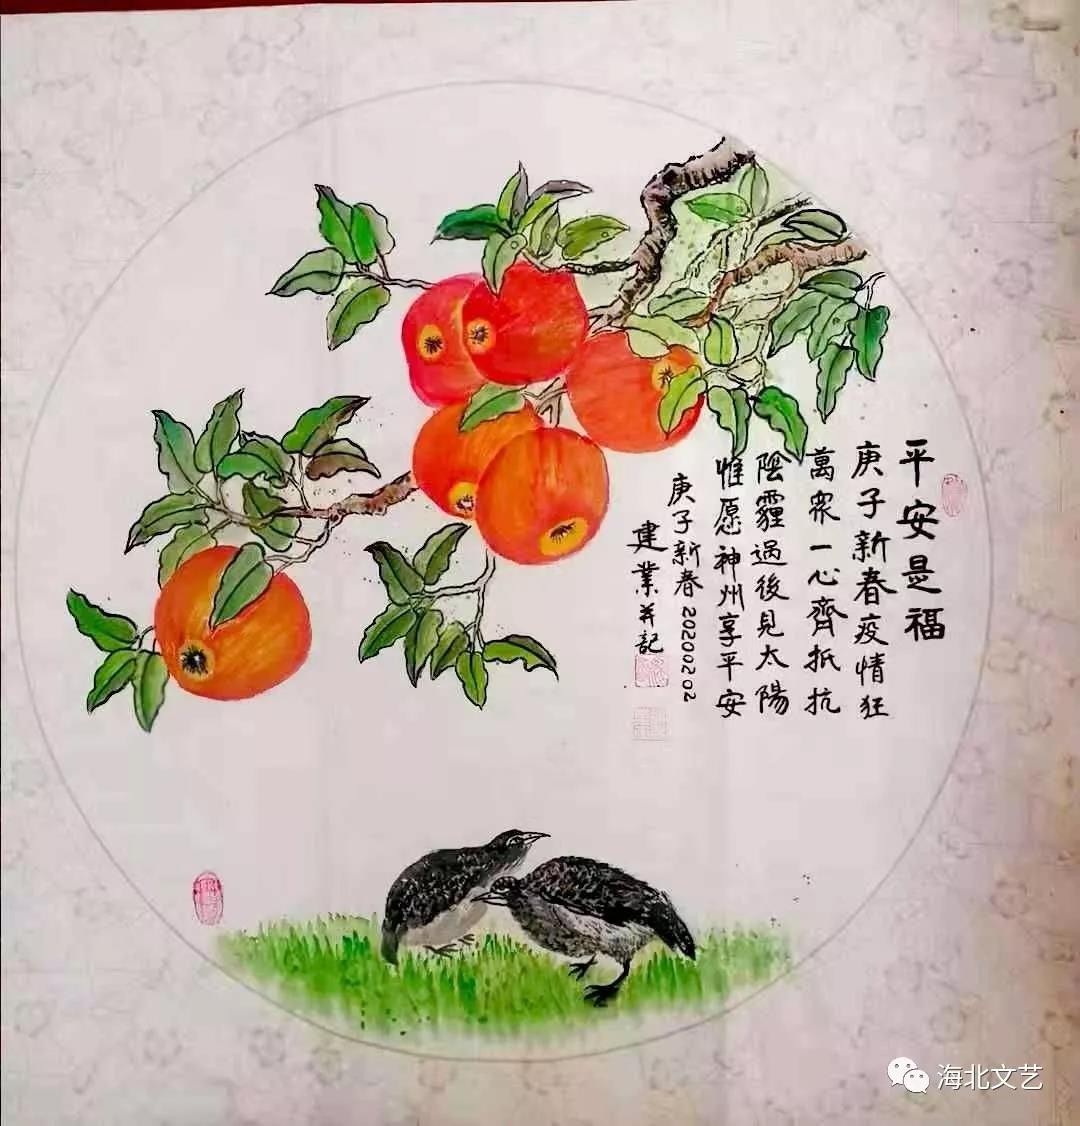 平安是福
庚子新春疫情狂
萬衆一心齊抵抗
陰霾過後見太陽
惟愿神州享平安
庚子新春20200202
建業并記
海北文艺